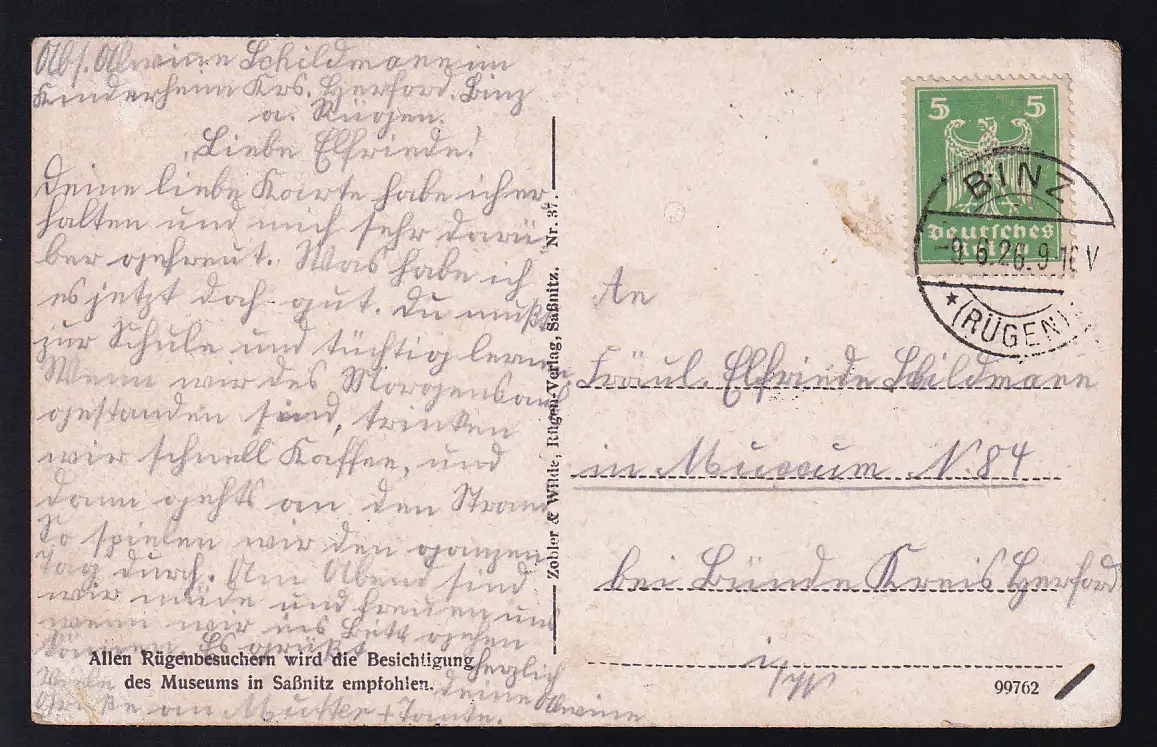 Abs. Alwine Schildmann im
Kinderheim Krs. Herford. Binz
a. Rügen.
Liebe Elfriede!
Deine liebe Karte habe ich er
halten und mich sehr darü
ber gefreut. Was habe ich
es jetzt doch gut. Du mußt
zur Schule und tüchtig lernen
Wenn wir des Morgens auf
gestanden sind, trinken
wir schnell Kaffee, und
dann gehts an den Strand
So spielen wir den ganzen
Tag durch. Am Abend sind
wir müde und freuen uns
wenn wir ins Bett gehen
können. Es grüßt
herzlich
deine Alwine
Viele
Grüße an Mutter + Tante.
Allen Rügenbesuchern wird die Besichtigung
des Museums in Saßnitz empfohlen.
Zobler & Wilde, Rügen-Verlag, Saßnitz. Nr. 37.
5 5
Deutsches
Reich
BINZ
-9.6.26.9-10V
* (RÜGEN)
An
Fräul. Elfriede Schildmann
in Muccum N. 84
bei Bünde Kreis Herford
i/W
99762